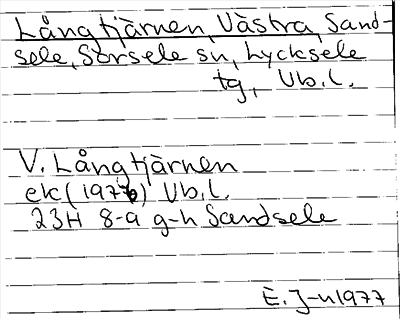 Långtjärnen, Västra, Sand-
sele, Sorsele sn, Lycksele
tg, Vb.l.
V. Långtjärnen
ek (1976) Vb.l.
23H 8-9 g-h Sandsele
E. J-n 1977